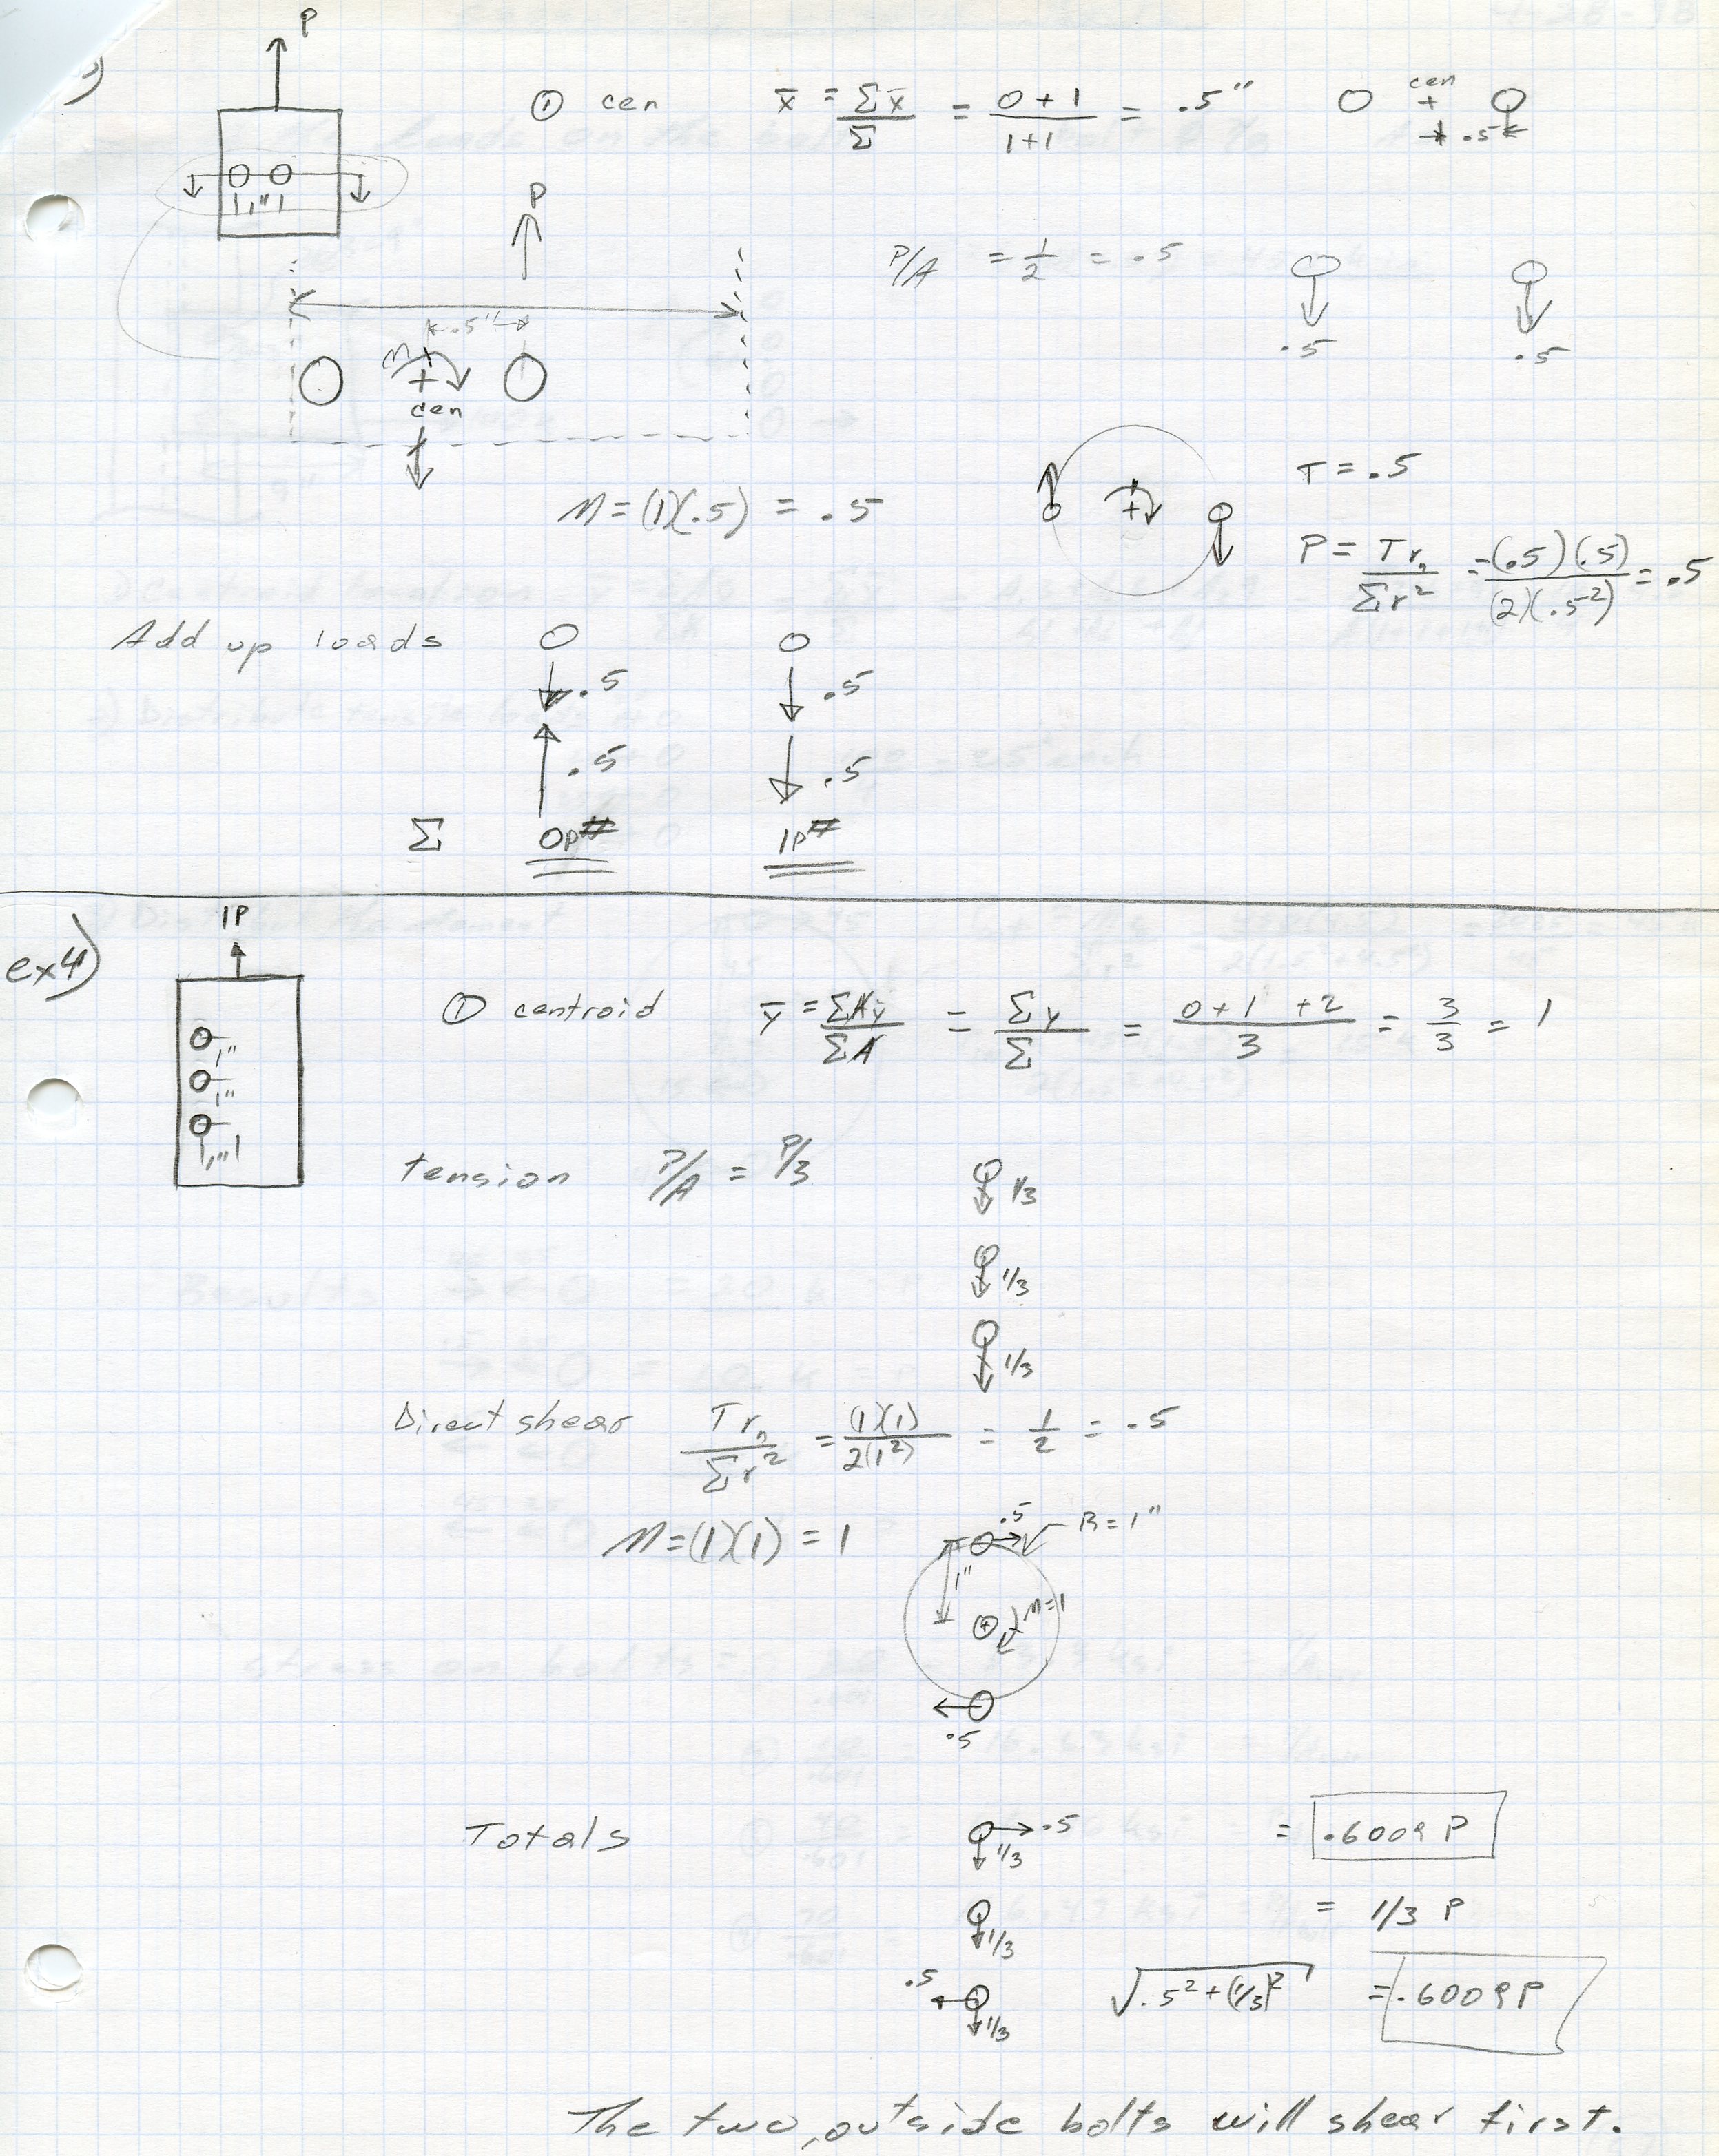 P
① cen x̄ = Σx̄/Σ = (0+1)/(1+1) = .5" cen + .5
1"
P
P/A = 1/2 = .5
.5"
.5 .5
M
+
cen
T = .5
M=(1)(.5) = .5
+
P = Tr₂/Σr² = (.5)(.5)/(2)(.5²) = .5
Add up loads
.5 .5
.5 .5
Σ 0P# 1P#
ex4) 1P
① centroid ȳ = ΣAy/ΣA = Σy/Σ = (0+1+2)/3 = 3/3 = 1
1"
1"
1"
tension P/A = P/3 1/3
1/3
1/3
Direct shear Tr₂/Σr² = (1)(1)/2(1²) = 1/2 = .5
M=(1)(1) = 1 .5 R=1"
1"
M=1
.5
Totals .5 1/3 = .6009 P
1/3 = 1/3 P
.5 1/3 √.5²+(1/3)² = .6009P
The two outside bolts will shear first.